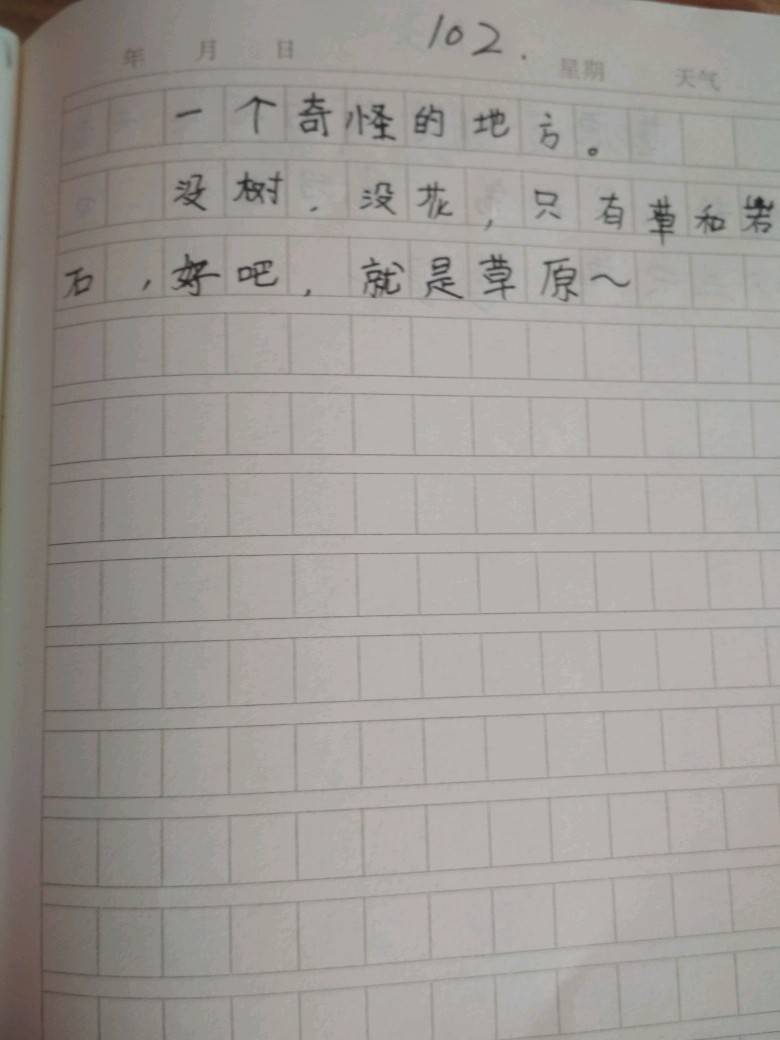 102.
年 月 日 星期 天气
一个奇怪的地方。
没树，没花，只有草和岩
石，好吧，就是草原～